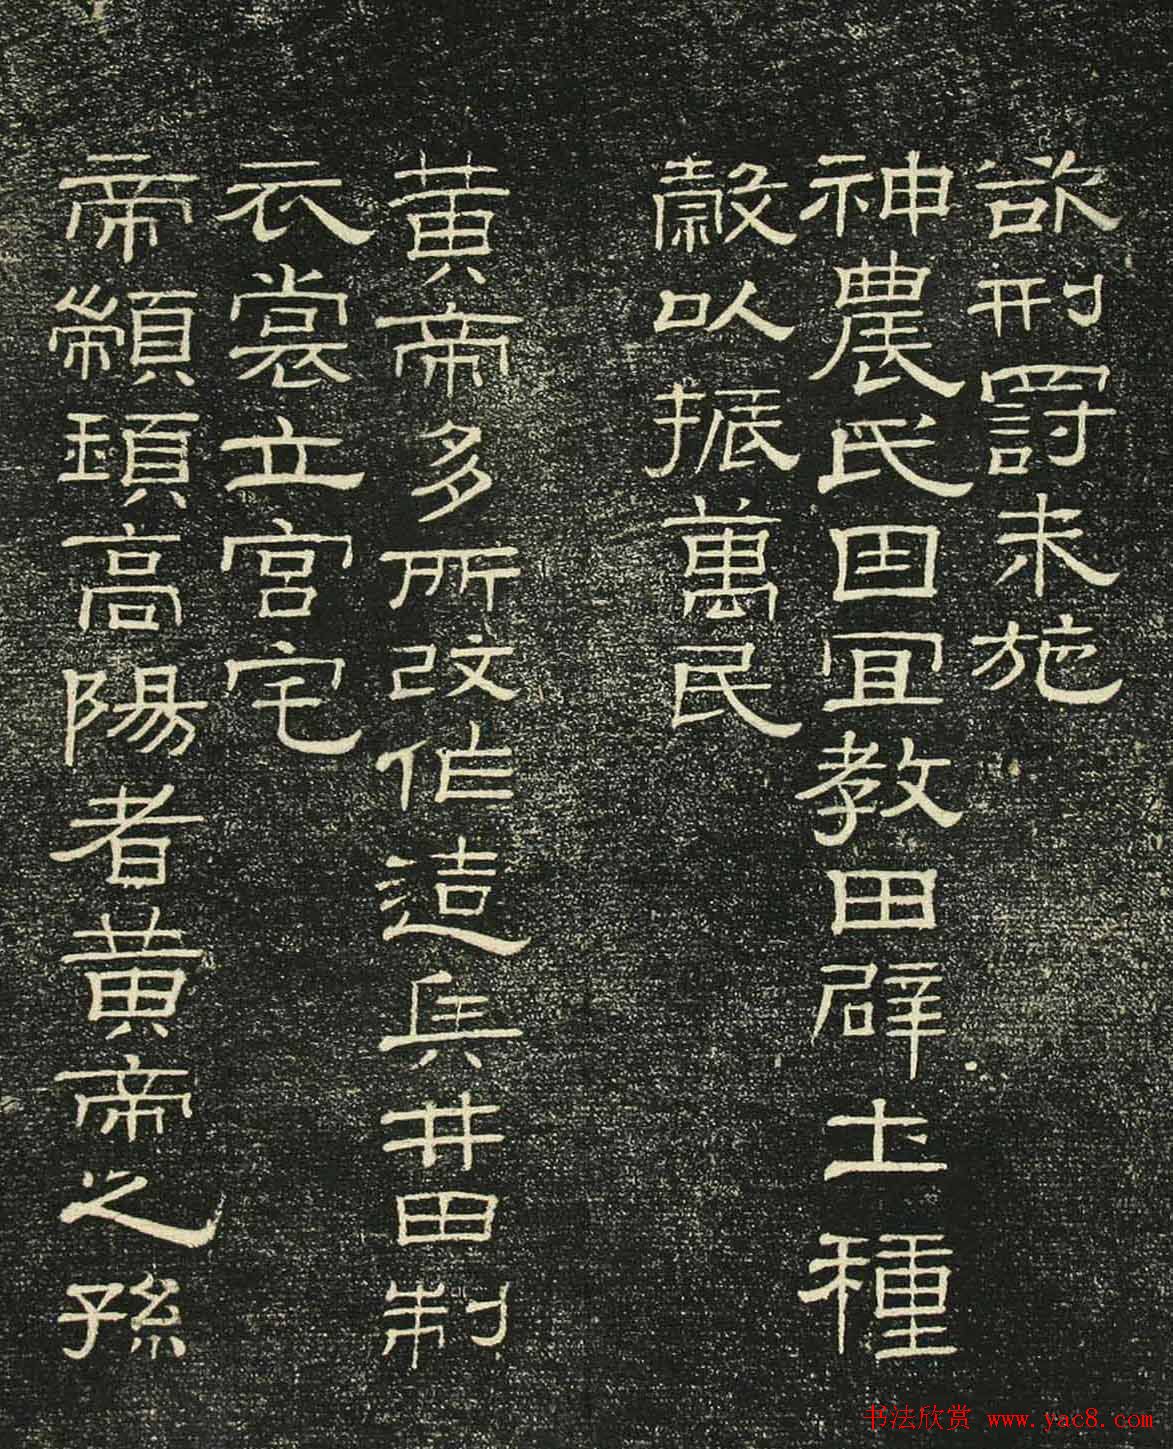 欲刑罰未施
神農氏因宜教田辟土種
穀以振萬民
黃帝多所改作造兵井田制
衣裳立宮宅
帝顓頊高陽者黃帝之孫
书法欣赏 www.yac8.com